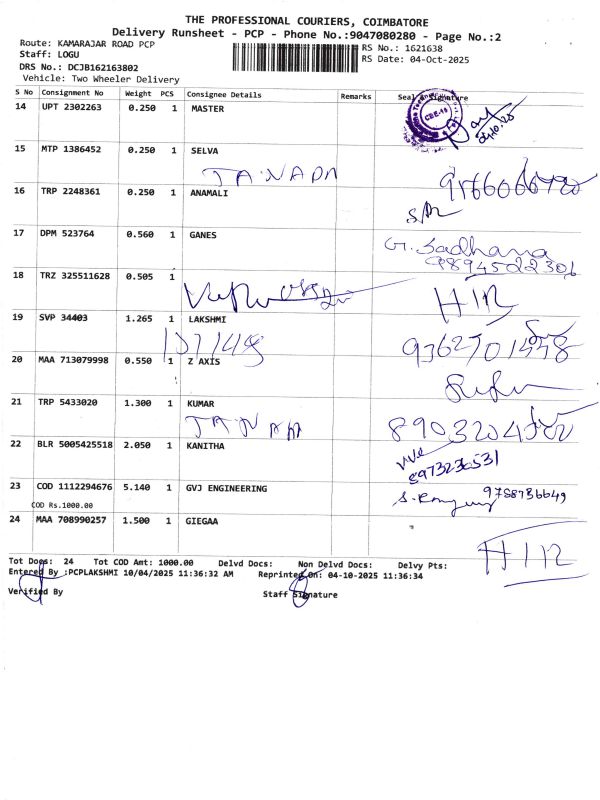 THE PROFESSIONAL COURIERS, COIMBATORE
Delivery Runsheet - PCP - Phone No.:9047080280 - Page No.:2
Route: KAMARAJAR ROAD PCP
Staff: LOGU
RS No.: 1621638
RS Date: 04-Oct-2025
DRS No.: DCJB162163802
Vehicle: Two Wheeler Delivery
S No Consignment No Weight PCS Consignee Details Remarks Seal Signature
14 UPT 2302263 0.250 1 MASTER
15 MTP 1386452 0.250 1 SELVA
JANADA
16 TRP 2248361 0.250 1 ANAMALI
17 DPM 523764 0.560 1 GANES
G. Sadhana
9894522306
18 TRZ 325511628 0.505 1
19 SVP 34403 1.265 1 LAKSHMI
20 MAA 713079998 0.550 1 Z AXIS
21 TRP 5433020 1.300 1 KUMAR
22 BLR 5005425518 2.050 1 KANITHA
8973236531
23 COD 1112294676 5.140 1 GVJ ENGINEERING
9788736649
COD Rs.1000.00
24 MAA 708990257 1.500 1 GIEGAA
Tot Docs: 24 Tot COD Amt: 1000.00 Delvd Docs: Non Delvd Docs: Delvy Pts:
Entered By :PCPLAKSHMI 10/04/2025 11:36:32 AM Reprinted On: 04-10-2025 11:36:34
Verified By Staff Signature